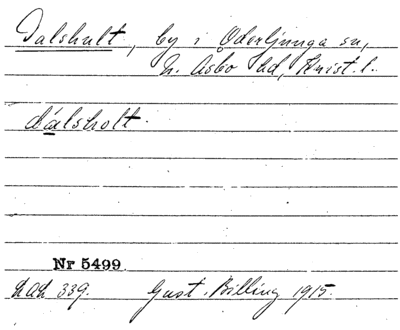 Dalshult, by i Oderljunga sn,
N. Åsbo hd, Krist. l.
dalsholt.
Nr 5499
LAL 339. Gust. Billing 1915.